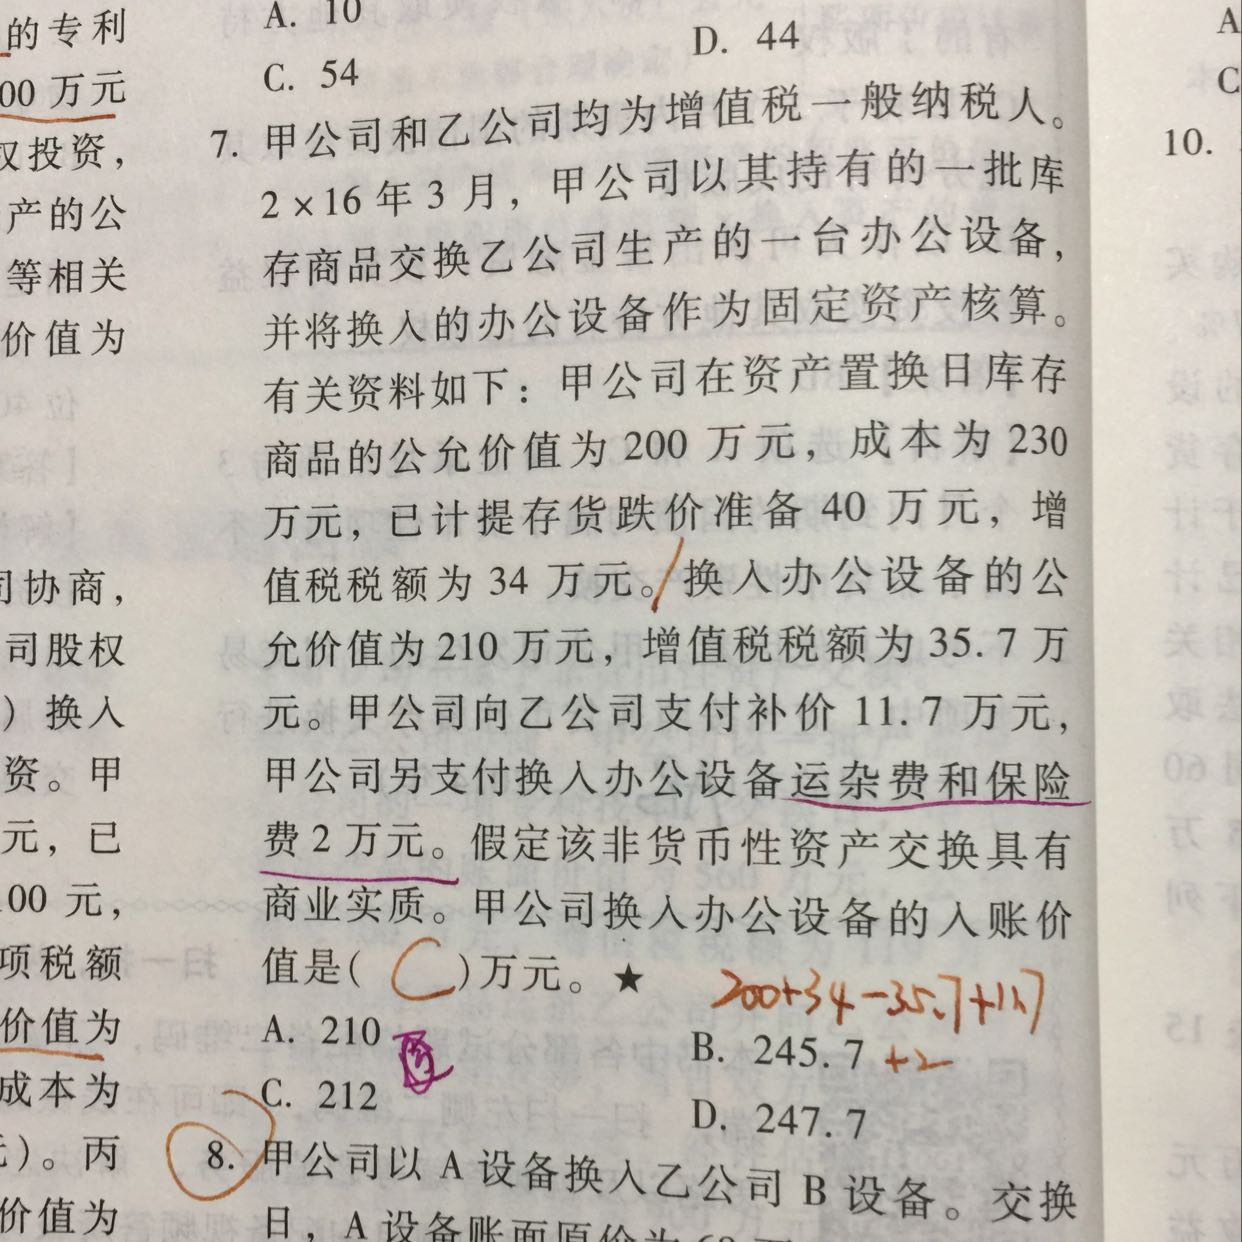 的专利
00 万元
权投资，
产的公
等相关
价值为
司协商，
司股权
）换入
资。甲
元，已
100 元，
项税额
价值为
成本为
元）。丙
价值为
A. 10
D. 44
C. 54
7. 甲公司和乙公司均为增值税一般纳税人。
2×16 年 3 月，甲公司以其持有的一批库
存商品交换乙公司生产的一台办公设备，
并将换入的办公设备作为固定资产核算。
有关资料如下：甲公司在资产置换日库存
商品的公允价值为 200 万元，成本为 230
万元，已计提存货跌价准备 40 万元，增
值税税额为 34 万元。换入办公设备的公
允价值为 210 万元，增值税税额为 35.7 万
元。甲公司向乙公司支付补价 11.7 万元，
甲公司另支付换入办公设备运杂费和保险
费 2 万元。假定该非货币性资产交换具有
商业实质。甲公司换入办公设备的入账价
值是( C )万元。★
200+34-35.7+11.7
+2
A. 210
B. 245.7
C. 212
D. 247.7
8. 甲公司以 A 设备换入乙公司 B 设备。交换
日，A 设备账面原价为
A
C
10.